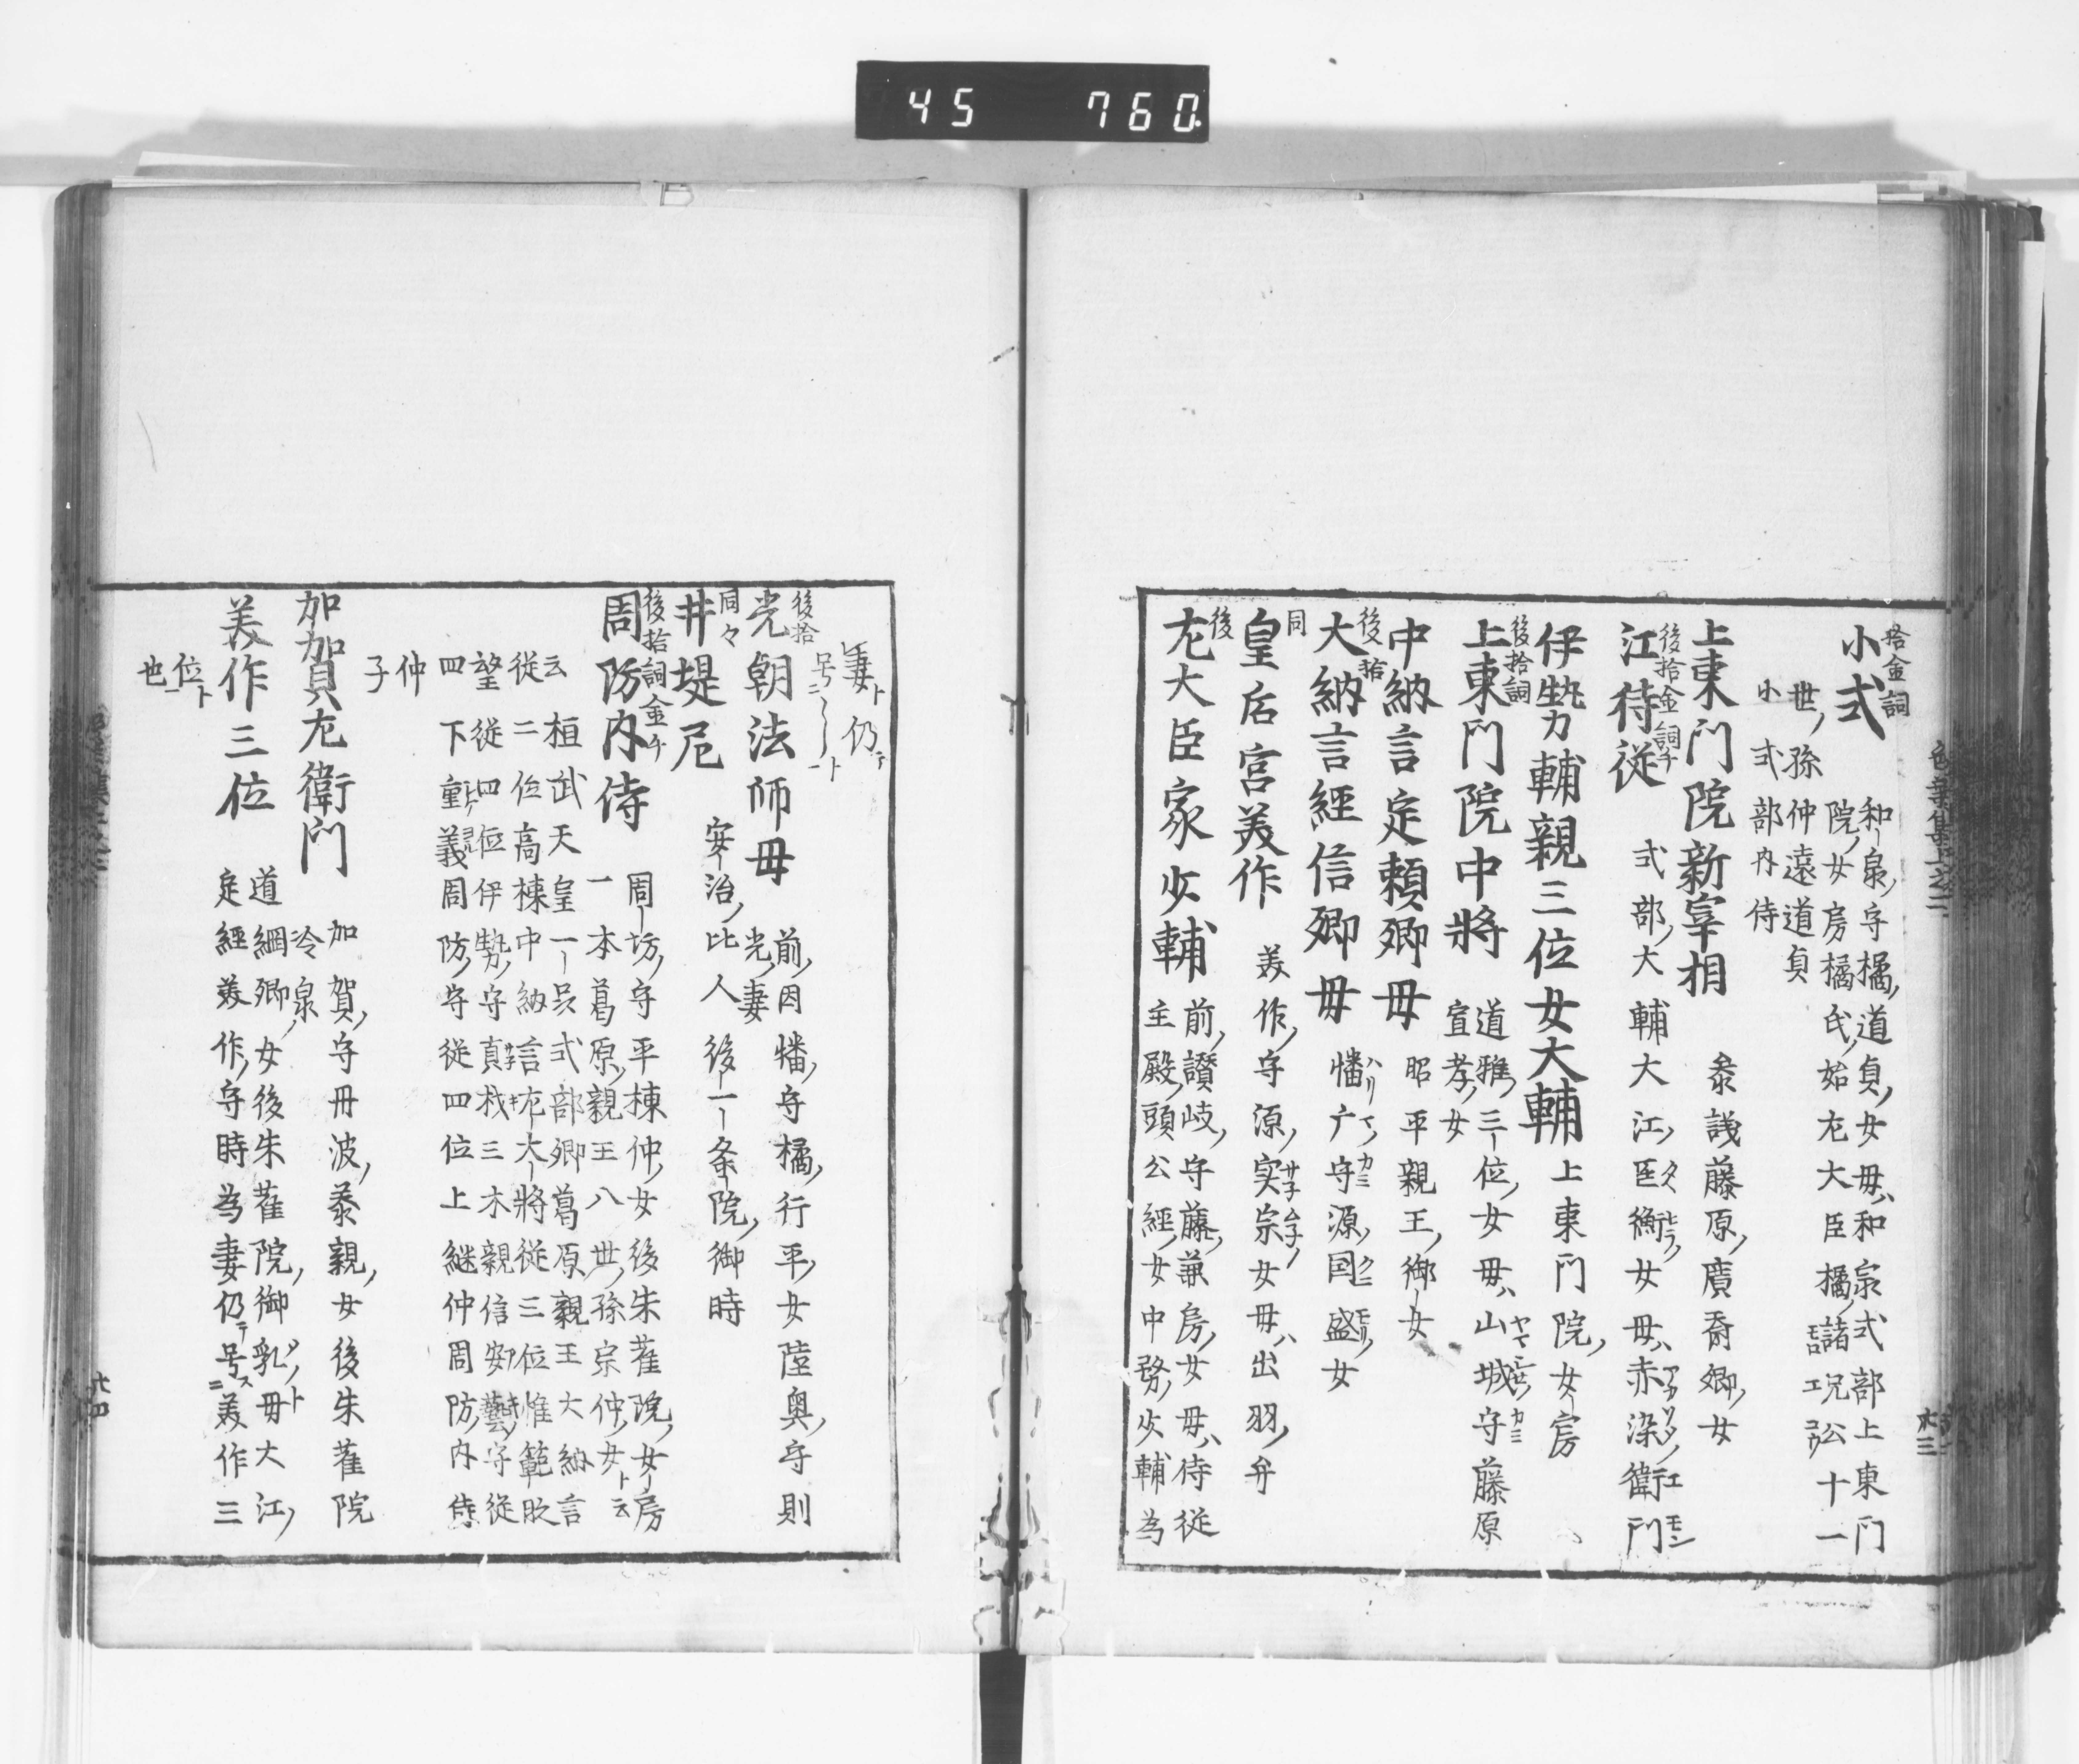 45 760
拾金詞
小式
和泉守橘道貞女母ハ和泉式部上東門
院女房橘氏始左大臣橘諸兄公十一
世孫仲遠道貞
小式部内侍
上東門院新宰相
参議藤原廣斎卿女
後拾金詞千
江侍従
式部大輔大江匡衡女母ハ赤染衛門
伊勢輔親三位女大輔
上東門院女房
後拾詞
上東門院中將
道雅三位女母ハ山城守藤原
宣孝女
中納言定頼卿母
昭平親王御女
後拾
大納言經信卿母
幡广守源国盛女
同
皇后宮美作
美作守源实宗女母ハ出羽弁
後
左大臣家少輔
前讃岐守藤兼房女母ハ侍従
主殿頭公經女中務少輔為
妻ト仍テ
号ニ
後拾
光朝法师母
前因幡守橘行平女陸奥守則
光妻
同々
井堤尼
安治比人後一条院御時
後拾詞金千
周防内侍
周坊守平棟仲女後朱雀院女房
一本葛原親王八世孫宗仲女ト云
云桓武天皇一品式部卿葛原親王大納言
従二位高棟中納言左大將従三位惟範
望従四位伊勢守真材三木親信安藝守従
四下重義周防守従四位上継仲周防内侍
仲
子
加賀左衛門
加賀守丹波泰親女後朱雀院
冷泉
美作三位
道綱卿女後朱雀院御乳母大江
定經美作守時為妻仍テ号ス美作三
位ト
也